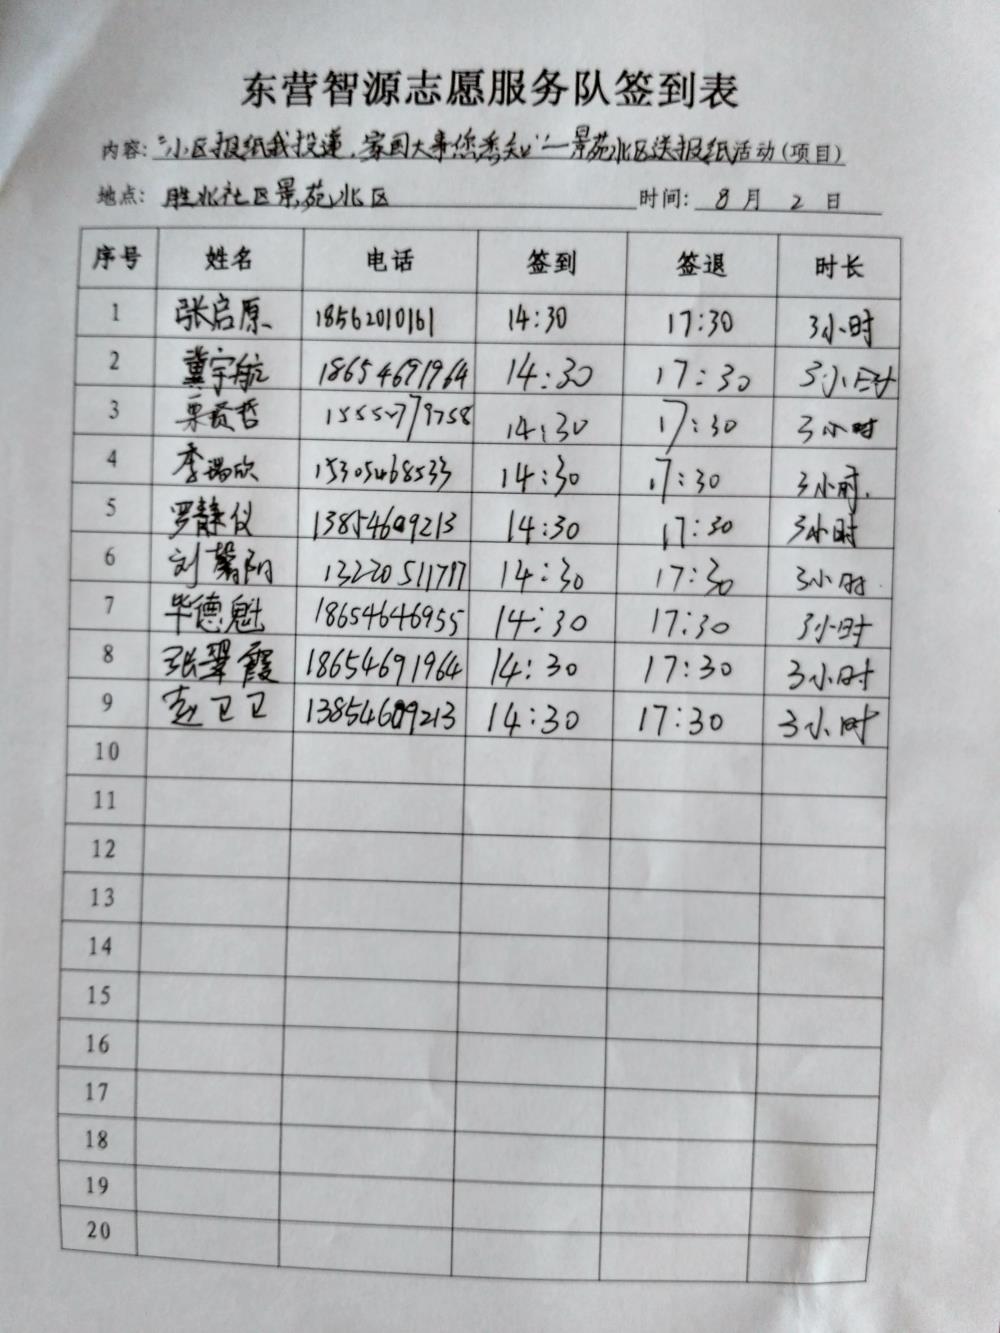 东营智源志愿服务队签到表
内容:“小区报纸我投递,家国大事您悉知”—景苑北区送报纸活动(项目)
地点: 胜北社区景苑北区 时间: 8 月 2 日
序号 姓名 电话 签到 签退 时长
1 张启原 18562010161 14:30 17:30 3小时
2 冀宇航 18654691964 14:30 17:30 3小时
3 贤哲 1555779758 14:30 17:30 3小时
4 李瑞欣 15305468533 14:30 17:30 3小时.
5 罗静仪 13854609213 14:30 17:30 3小时
6 刘馨阳 14:30 17:30 3小时.
7 毕德魁 18654646955 14:30 17:30 3小时
8 张翠霞 18654691964 14:30 17:30 3小时
9 赵卫卫 13854609213 14:30 17:30 3小时
10
11
12
13
14
15
16
17
18
19
20